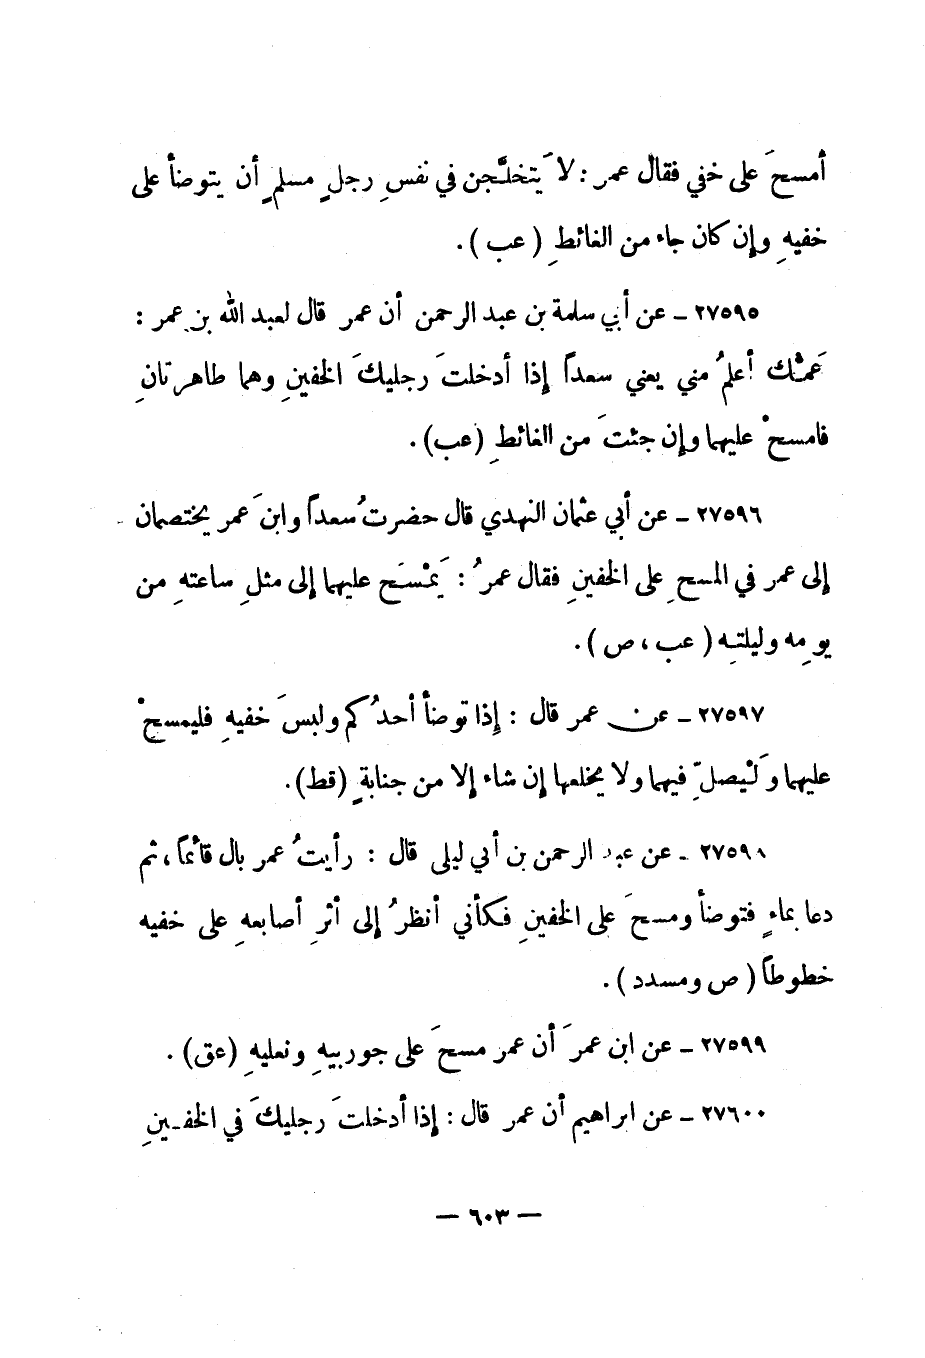 أمسحَ على خفي فقال عمر : لا يَتخلَّجن في نفسِ رجلٍ مسلمٍ أن يتوضأ على
خفيهِ وإن كان جاء من الغائطِ ( عب ) .
٢٧٥٩٥ ـ عن أبي سلمة بن عبد الرحمن أن عمر قال لعبد الله بن عمر :
عَمُّك أعلمُ مني يعني سعداً إذا أدخلتَ رجليكَ الخفينِ وهما طاهرتانِ
فامسحْ عليهما وإن جئتَ من الغائطِ (عب) .
٢٧٥٩٦ ـ عن أبي عثمان النهدي قال حضرتُ سعداً وابنَ عمر يختصمان
إلى عمر في المسحِ على الخفينِ فقال عمرُ : يَمْسَح عليهما إلى مثلِ ساعتهِ من
يومِه وليلتِه ( عب ، ص ) .
٢٧٥٩٧ ـ عن عمر قال : إذا توضأ أحدُكم ولبسَ خفيهِ فليمسحْ
عليهما وَلْيصلِّ فيهما ولا يخلعها إن شاء إلا من جنابةٍ (قط) .
٢٧٥٩٨ ـ عن عبد الرحمن بن أبي ليلى قال : رأيتُ عمر بال قائماً ، ثم
دعا بماءٍ فتوضأ ومسحَ على الخفينِ فكأني أنظرُ إلى أثرِ أصابعهِ على خفيه
خطوطاً ( ص ومسدد ) .
٢٧٥٩٩ ـ عن ابن عمرَ أن عمر مسحَ على جوربيهِ ونعليهِ (عق) .
٢٧٦٠٠ ـ عن ابراهيم أن عمر قال : إذا أدخلتَ رجليكَ في الخفـينِ
— ٦٠٣ —